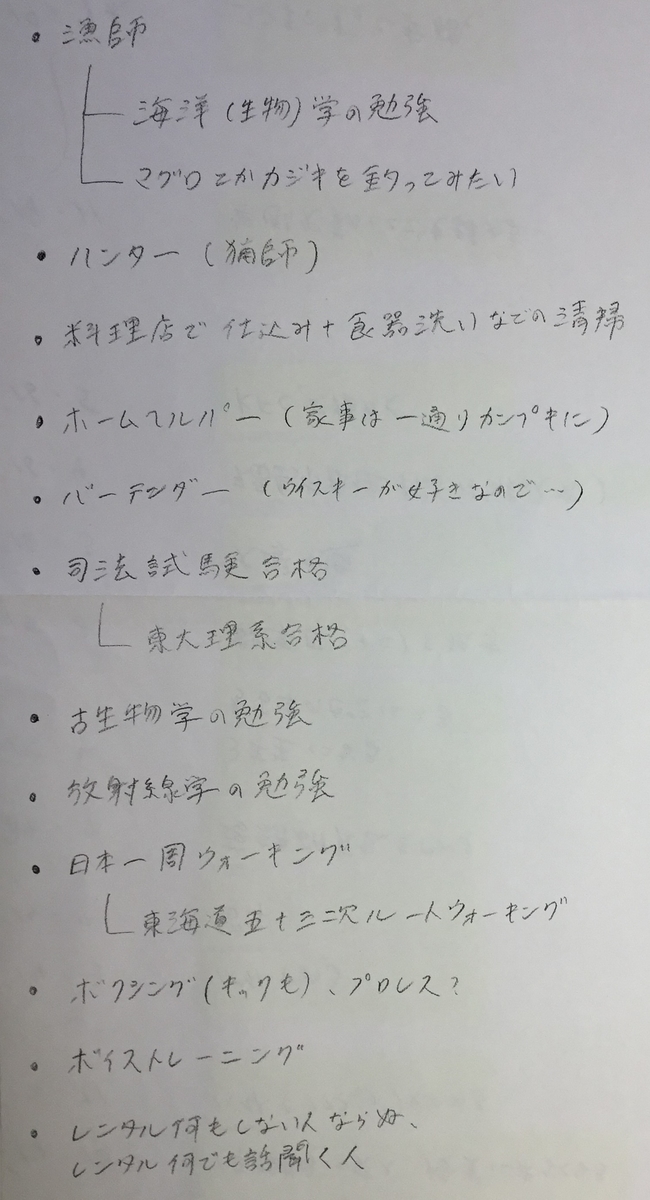 ・漁師
海洋(生物)学の勉強
マグロとかカジキを釣ってみたい
・ハンター (猟師)
・料理店で仕込み+食器洗いなどの清掃
・ホームヘルパー (家事は一通りカンプキに)
・バーテンダー (ウイスキーが好きなので…)
・司法試験合格
東大理系合格
・古生物学の勉強
・放射線学の勉強
・日本一周ウォーキング
東海道五十三次ルートウォーキング
・ボクシング(キックも)、プロレス?
・ボイストレーニング
・レンタル何もしない人ならぬ、
レンタル何でも話聞く人